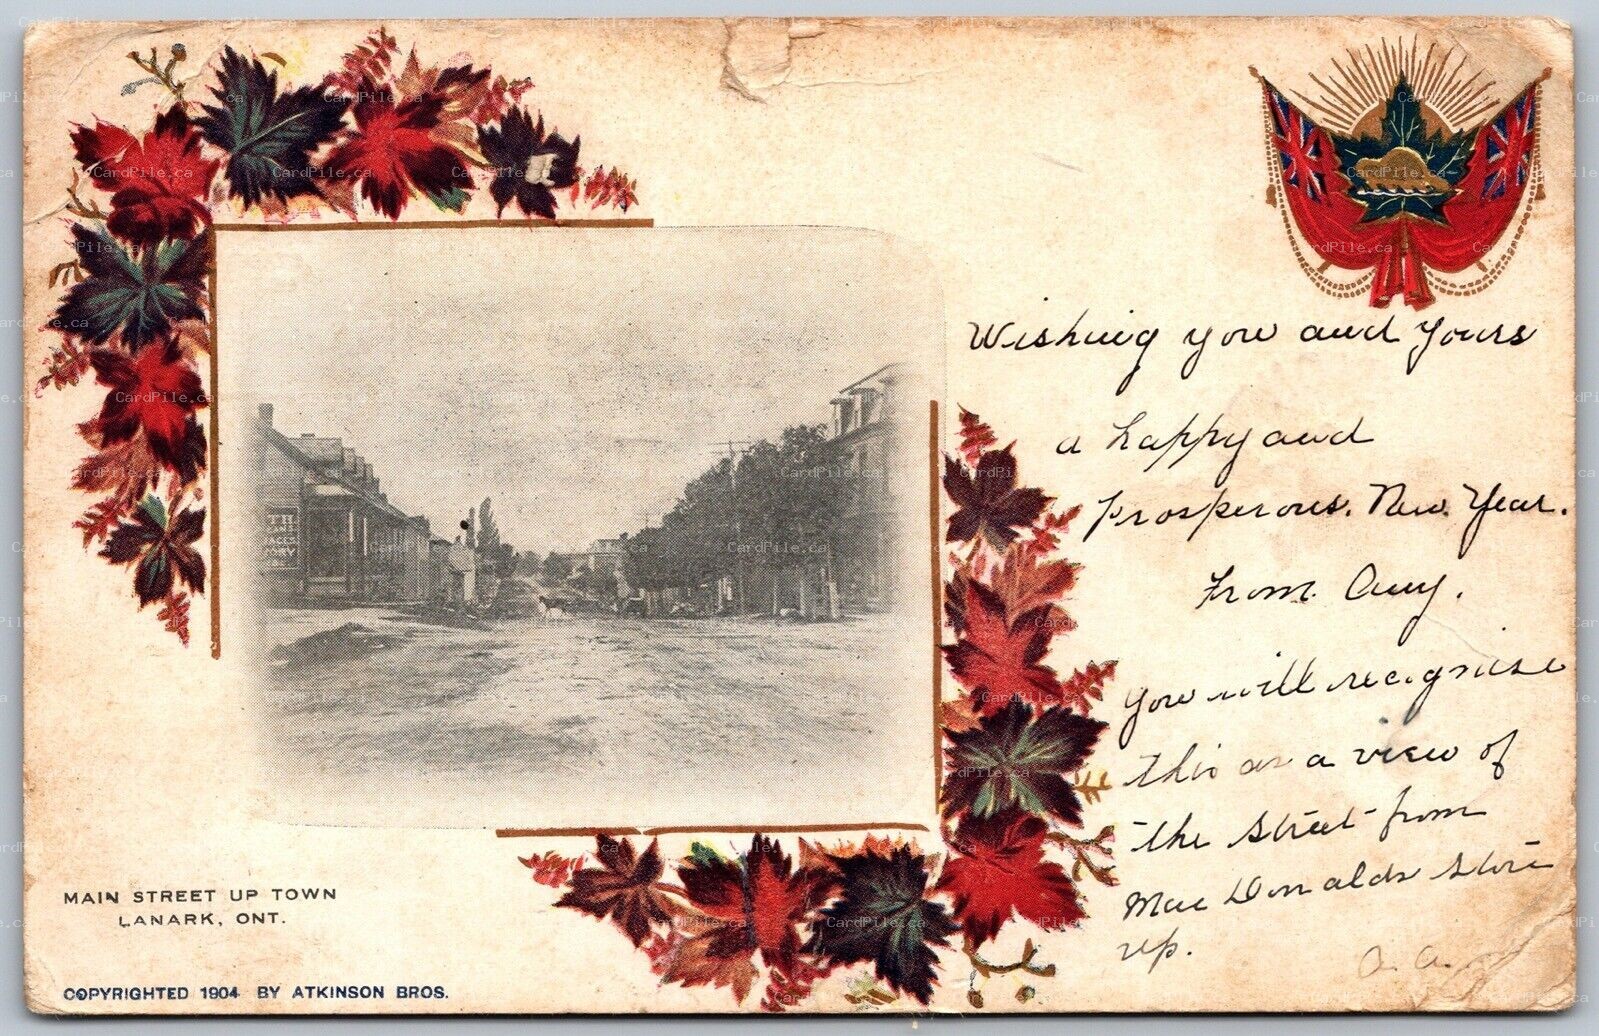 Wishing you and yours
a happy and
prosperous. New Year.
From Amy.
You will recognise
this as a view of
the street from
Mac Donalds store
up.
a. a.
TH
MAIN STREET UP TOWN
LANARK, ONT.
COPYRIGHTED 1904 BY ATKINSON BROS.
CardPile.ca